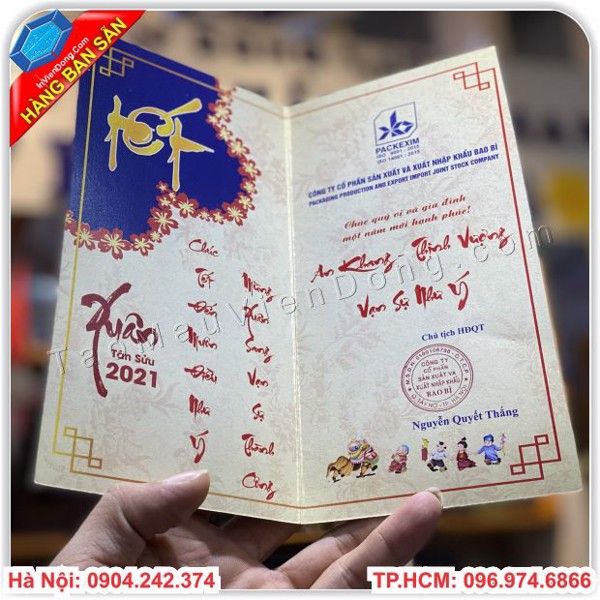 InVienDong.Com
HÀNG BÁN SẴN
TẾT
Chúc
Tết Mừng
Đến Xuân
Muôn Sang
Điều Vạn
Như Sự
Ý Thành
Công
Xuân
Tân Sửu
2021
PACKEXIM
ISO 9001 - 2015
ISO 14001 - 2015
CÔNG TY CỔ PHẦN SẢN XUẤT VÀ XUẤT NHẬP KHẨU BAO BÌ
PACKAGING PRODUCTION AND EXPORT IMPORT JOINT STOCK COMPANY
Chúc quý vị và gia đình
một năm mới hạnh phúc!
An Khang Thịnh Vượng
Vạn Sự Như Ý
Chủ tịch HĐQT
CÔNG TY
CỔ PHẦN
SẢN XUẤT VÀ
XUẤT NHẬP KHẨU
BAO BÌ
Nguyễn Quyết Thắng
TaoMauVienDong.Com
Hà Nội: 0904.242.374
TP.HCM: 096.974.6866